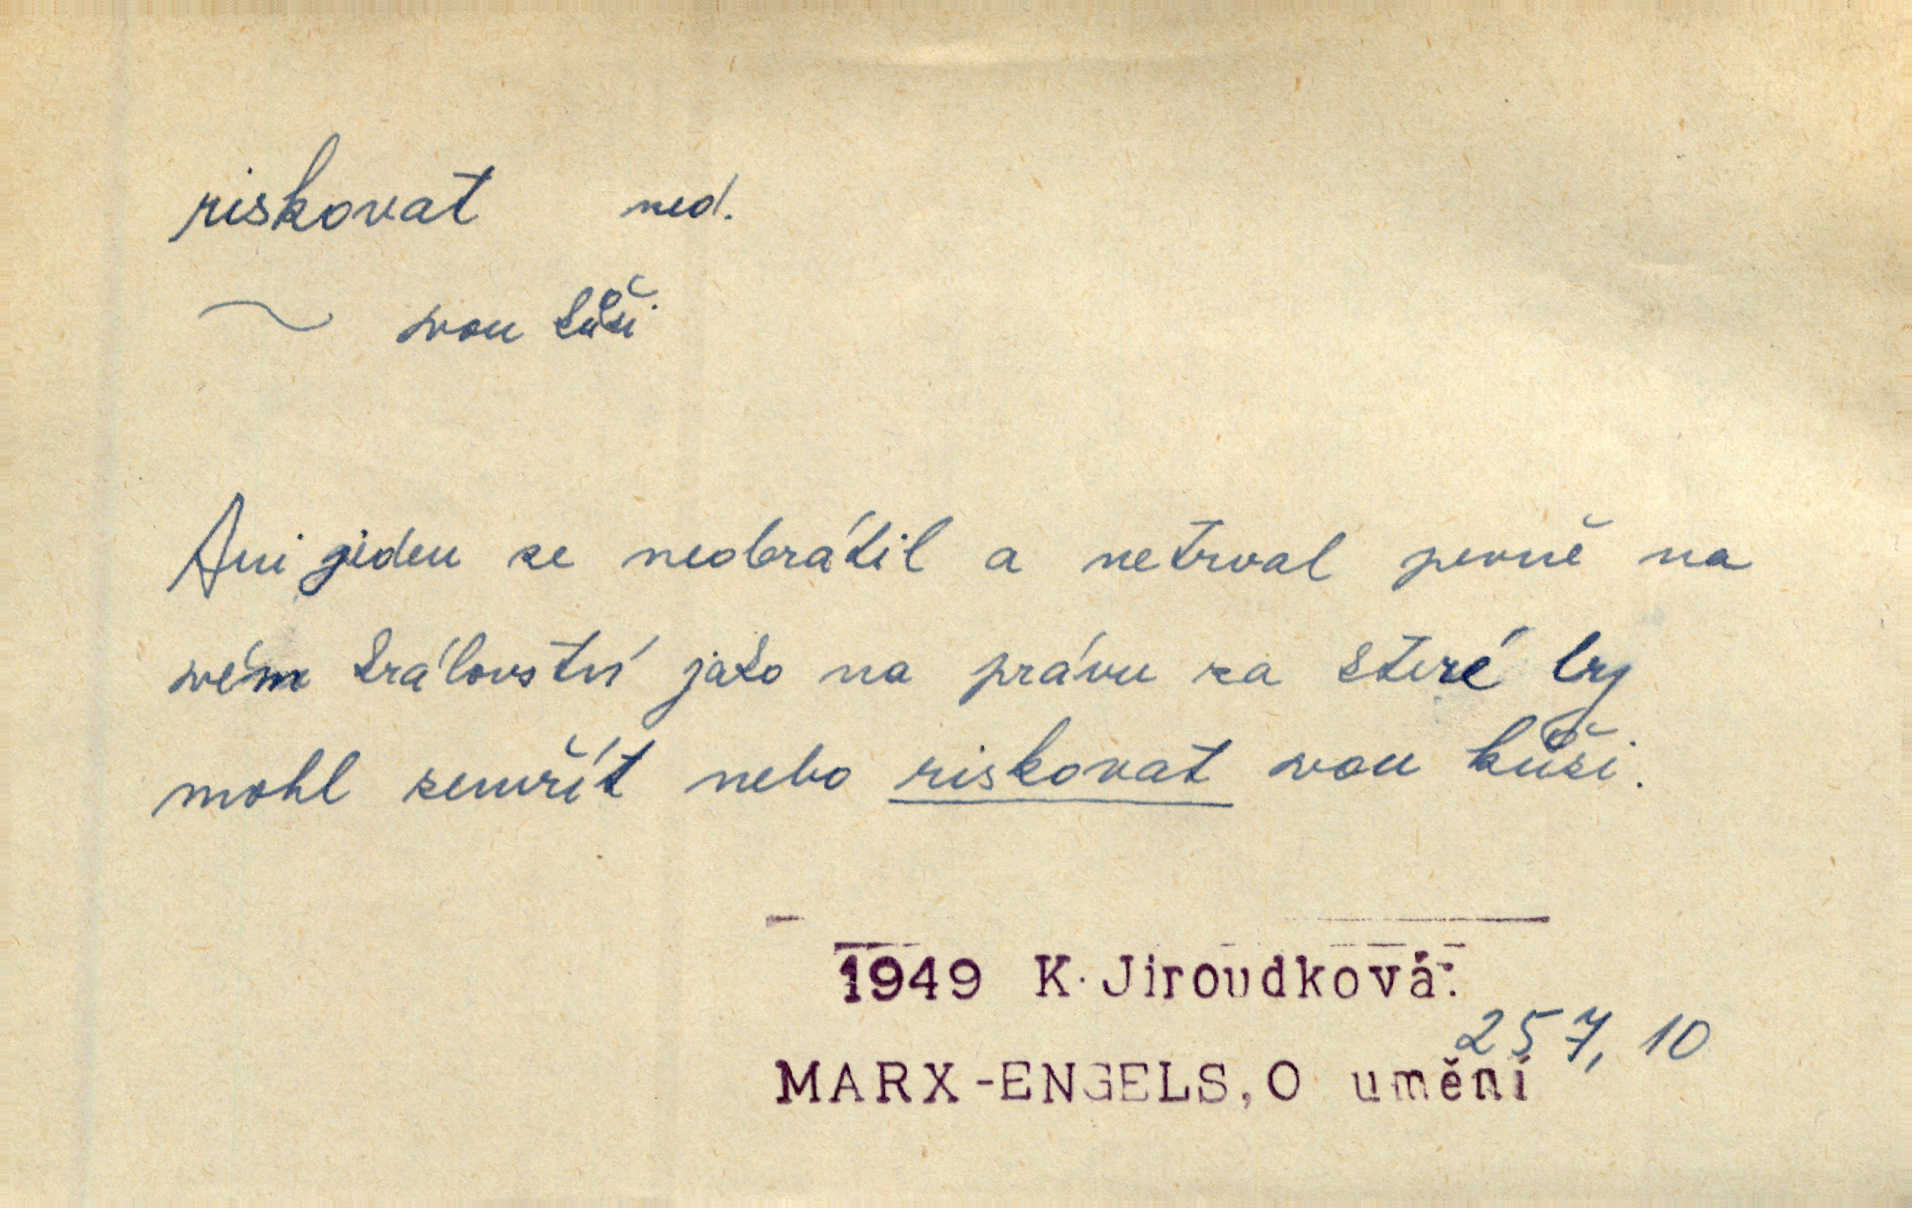 riskovat ned.
~ svou kůži
Ani jeden se neobrátil a netrval pevně na
svém království jako na právu za které by
mohl zemřít nebo riskovat svou kůži.
1949 K. Jiroudková:
257, 10
MARX-ENGELS, O umění